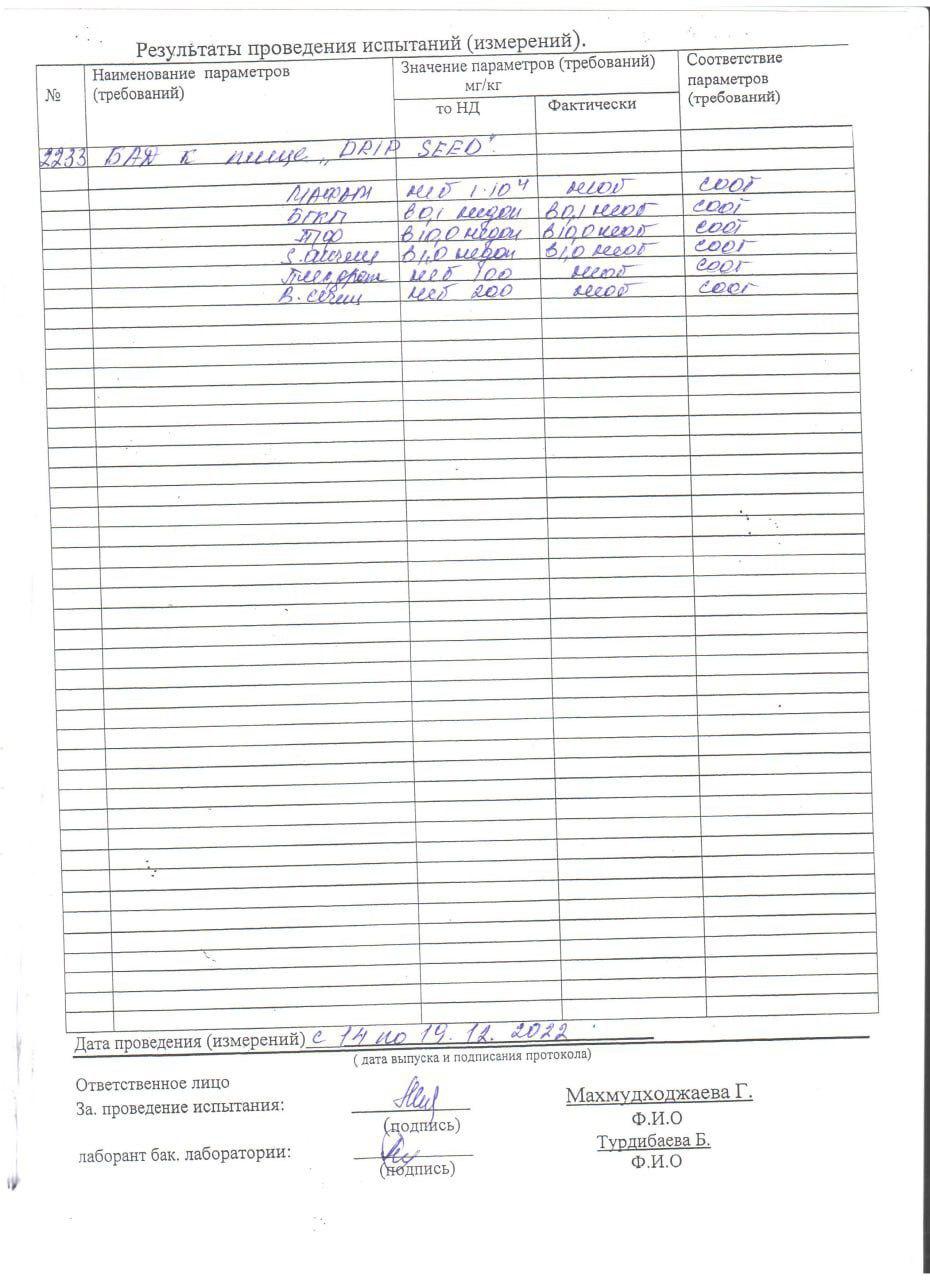 Результаты проведения испытаний (измерений).
№ Наименование параметров (требований) Значение параметров (требований) мг/кг Соответствие параметров (требований)
то НД Фактически
2233 БАД к пище „DRIP SEED"
МАФАМ не б 1·10⁴ необ соот
БГКП в 0,1 недоп в 0,1 необ соот
в 10,0 недоп в 10,0 необ соот
S. в 1,0 недоп в 1,0 необ соот
не б 100 необ соот
B. не б 200 необ соот
Дата проведения (измерений) с 14 по 19.12.2022
( дата выпуска и подписания протокола)
Ответственное лицо
За. проведение испытания: Махмудходжаева Г.
(подпись) Ф.И.О
лаборант бак. лаборатории: Турдибаева Б.
(подпись) Ф.И.О